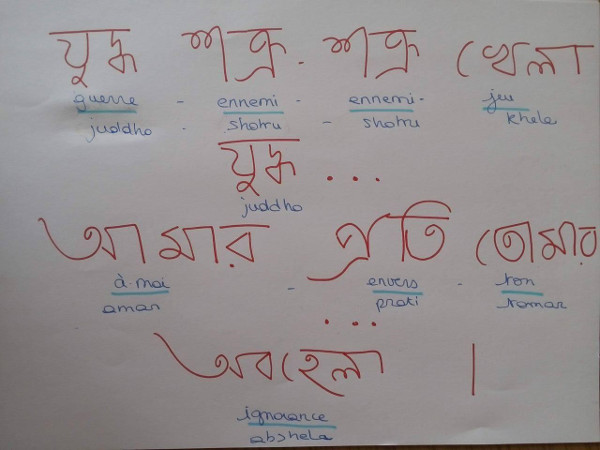 যুদ্ধ শত্রু - শত্রু খেলা
guerre - ennemi - ennemi - jeu
juddho - shotru - shotru khela
যুদ্ধ ...
juddho
আমার প্রতি তোমার
à moi - envers - ton
amar prati tomar
...
অবহেলা ।
ignorance
abohela